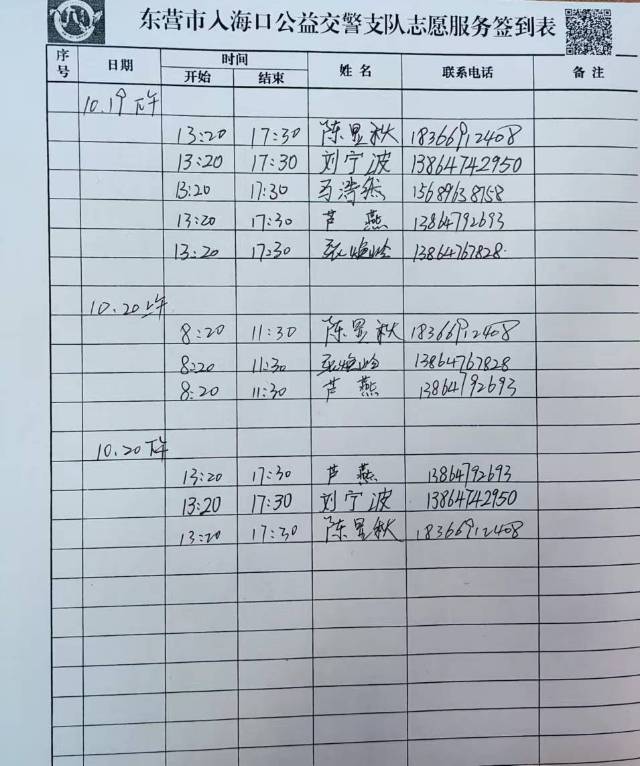 东营市入海口公益交警支队志愿服务签到表
序号 日期 时间 姓名 联系电话 备注
开始 结束
10.19下午
13:20 17:30 陈显秋 18366912408
13:20 17:30 刘宁波 13864742950
13:20 17:30 马浩然 15689638758
13:20 17:30 芦燕 13864792693
13:20 17:30 张 13864767828
10.20上午
8:20 11:30 陈显秋 18366912408
8:20 11:30 张 13864767828
8:20 11:30 芦燕 13864792693
10.20下午
13:20 17:30 芦燕 13864792693
13:20 17:30 刘宁波 13864742950
13:20 17:30 陈显秋 18366912408